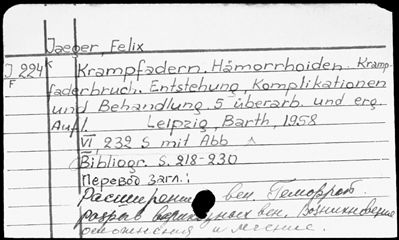 Jaeger, Felix
J 224 K
F
Krampfadern. Hämorrhoiden. Kramp-
faderbruch. Entstehung, Komplikationen
und Behandlung 5 überarb. und erg.
Aufl. Leipzig, Barth, 1958
VI, 232 S mit Abb
Bibliogr. S. 218-230
Перевод загл.:
Расширение вен. Геморрой.
разрыв варикозных вен. Возникновение
осложнения и